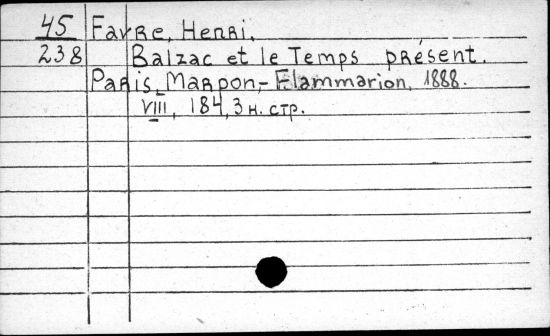 45 Favre, Henri.
238 Balzac et le Temps présent.
Paris, Marpon,- Flammarion, 1888.
VIII, 184, 3 н. стр.